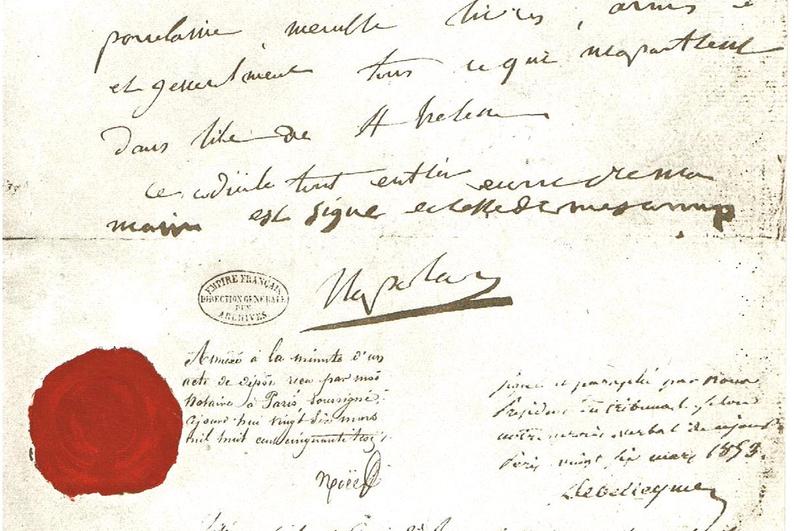 porcelaine, meuble livres, armes
et generlment tous ce que mapartient
dans lile de St helene
ce codicile tout entier ecrit de ma
main est signe et de mes armes
Napoleon
EMPIRE FRANÇAIS
DIRECTION GENERALE
DES
ARCHIVES
Annexé à la minute d'un
acte de dépôt reçu par moi
Notaire à Paris soussigné
cejourd'hui vingt six mars
mil huit cent cinquante trois
Noël
signé et paraphé par nous
Président du tribunal, selon
notre procès verbal de ce jour
Paris vingt six mars 1853
Debelleyme